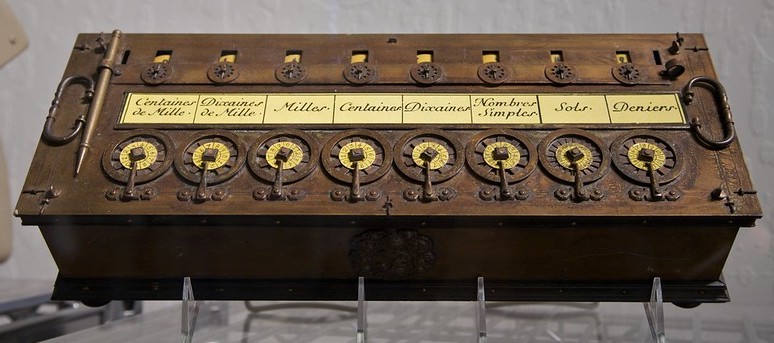 Centaines
de Mille.
Dixaines
de Mille.
Milles.
Centaines
Dixaines
Nombres
Simples.
Sols.
Deniers.